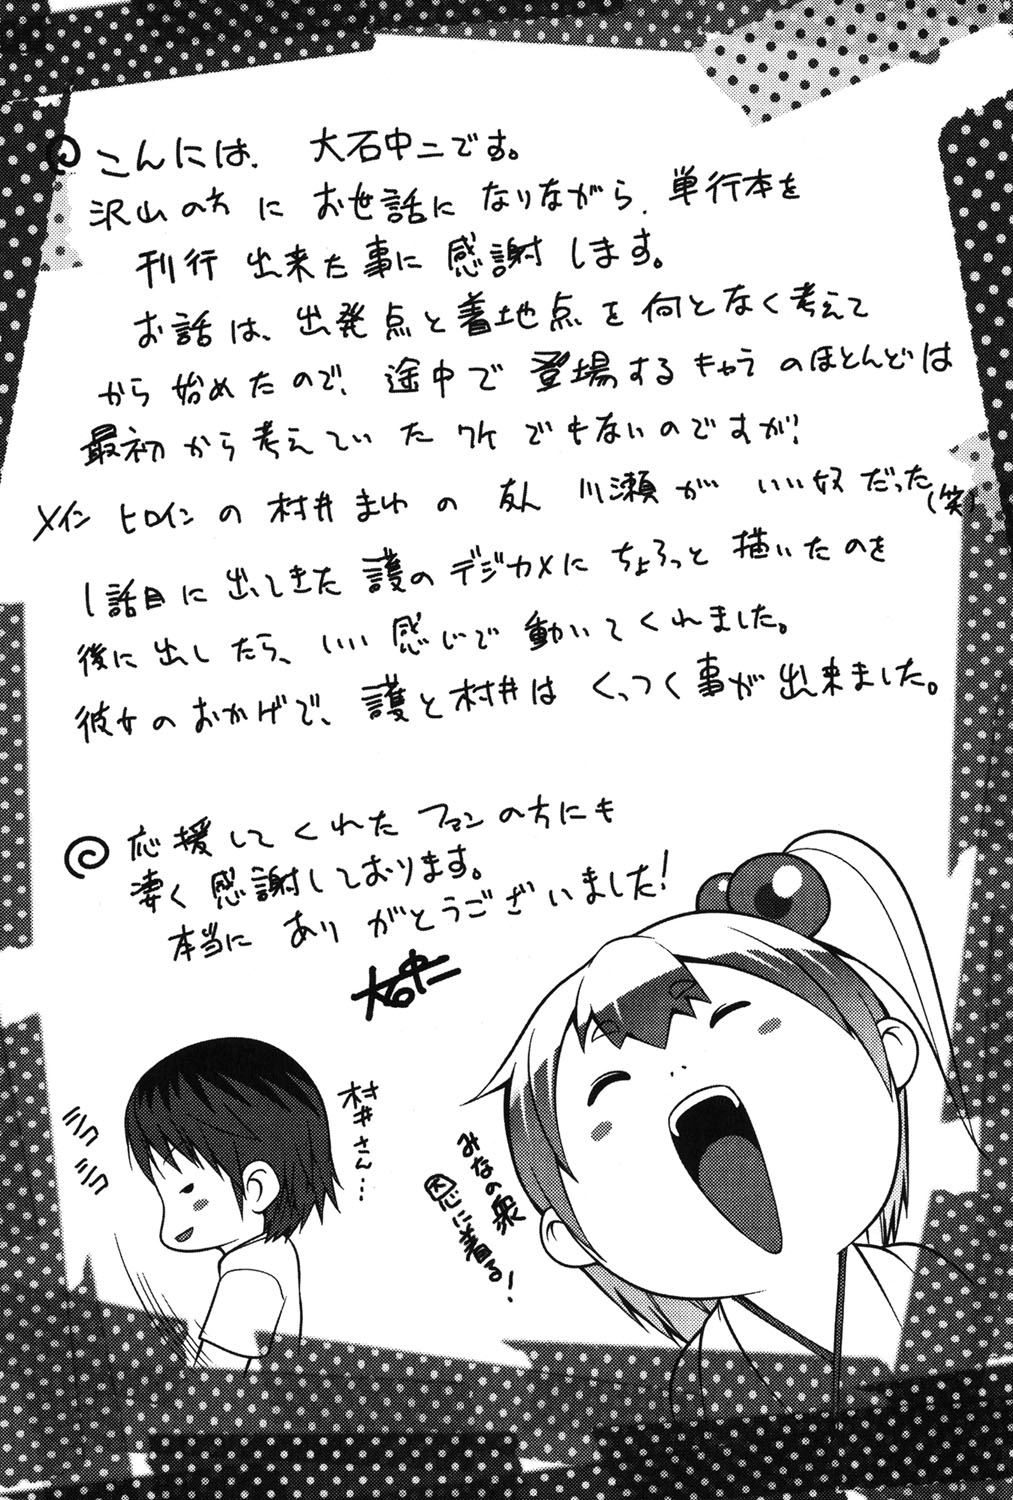 こんには、大石中二です。
沢山の方にお世話になりながら、単行本を
刊行出来た事に感謝します。
お話は、出発点と着地点を何となく考えて
から始めたので、途中で登場するキャラのほとんどは
最初から考えていたワケでもないのですが!
メインヒロインの村井まゆの友人川瀬がいい奴だった(笑)
1話目に出てきた護のデジカメにちょろっと描いたのを
後に出したら、いい感じで動いてくれました。
彼女のおかげで、護と村井はくっつく事が出来ました。
応援してくれたファンの方にも
凄く感謝しております。
本当にありがとうございました!
大石中二
村井さん…
ミク
ミク
みなの衆
恩に着る!